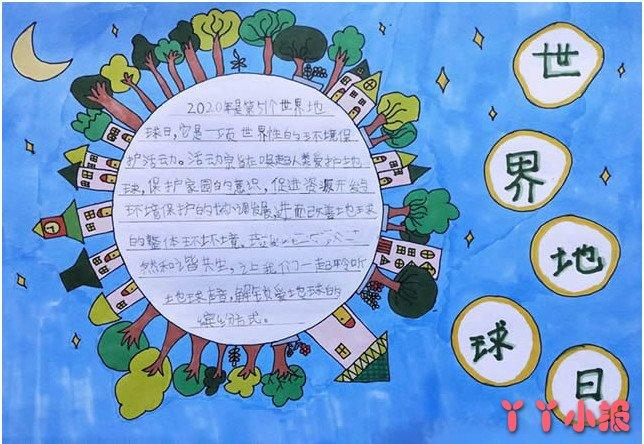 世
界
地
球
日
2020年是第51个世界地
球日，它是一项世界性的环境保
护活动。活动宗旨在唤起人类爱护地
球，保护家园的意识，促进资源开发与
环境保护的协调发展，进而改善地球
的整体环境，
然和谐共生，让我们一起聆听
地球声音，解锁爱地球的
缤纷方式。
丫丫小报